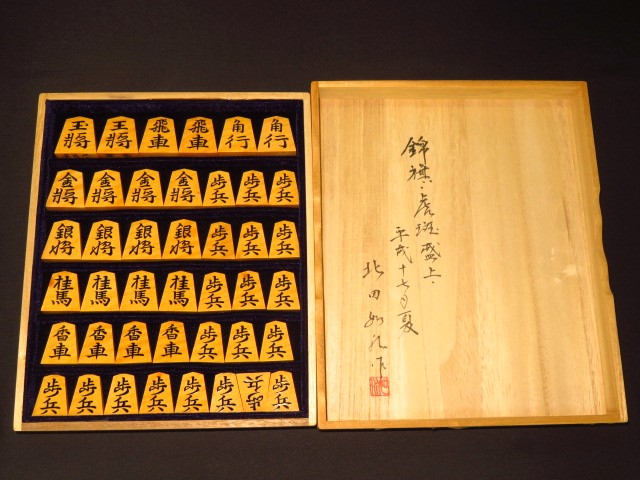 玉將 王將 飛車 飛車 角行 角行
金將 金將 金將 金將 歩兵 歩兵 歩兵
銀将 銀将 銀将 銀将 歩兵 歩兵 歩兵
桂馬 桂馬 桂馬 桂馬 歩兵 歩兵 歩兵
香車 香車 香車 香車 歩兵 歩兵 歩兵
歩兵 歩兵 歩兵 歩兵 歩兵 歩兵 歩兵 歩兵
錦旗・虎斑盛上・
平成十七年夏
北田 作